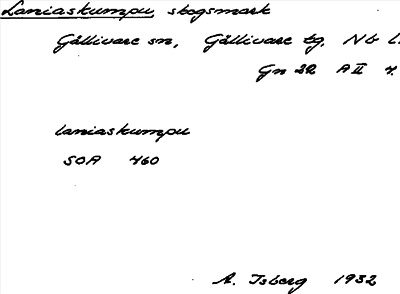 Laniaskumpu skogsmark
Gällivare sn, Gällivare tg, Nb L.
Gn 32 A II 4.
laniaskumpu
SOA 460
A. Isberg 1932